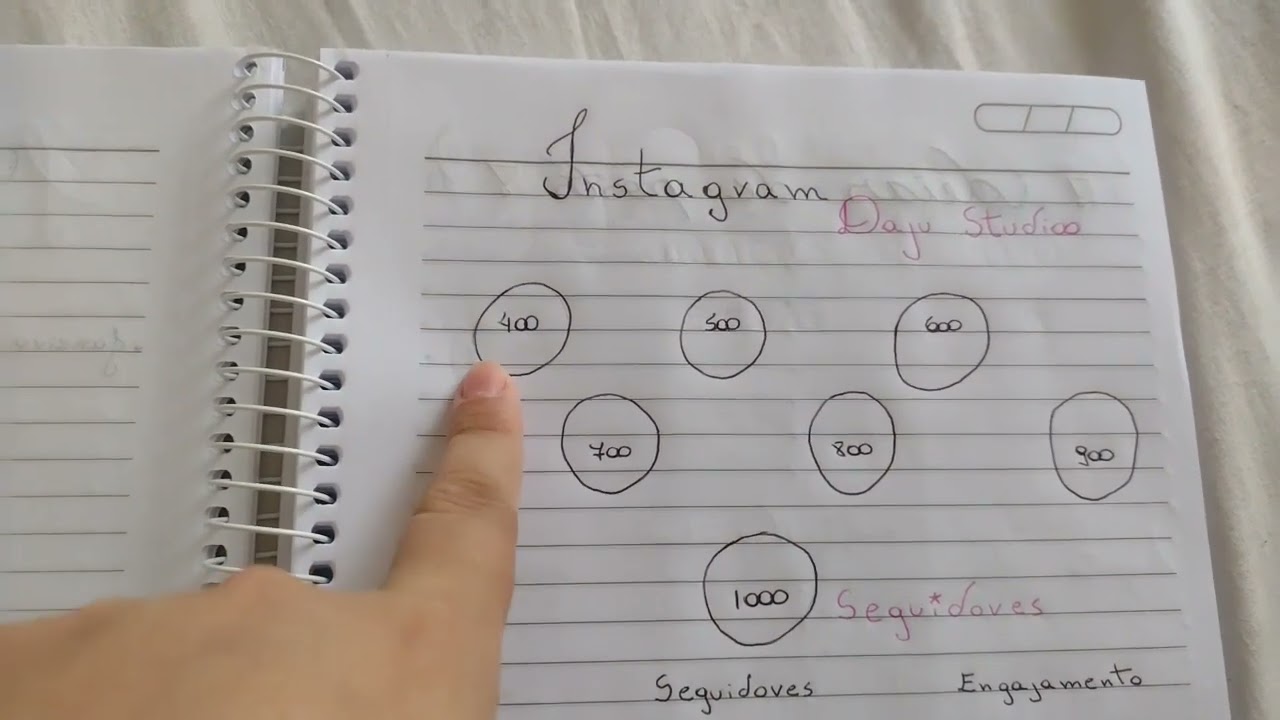 Instagram
Daju Studio
400 500 600
700 800 900
1000 Seguidores
Seguidores Engajamento